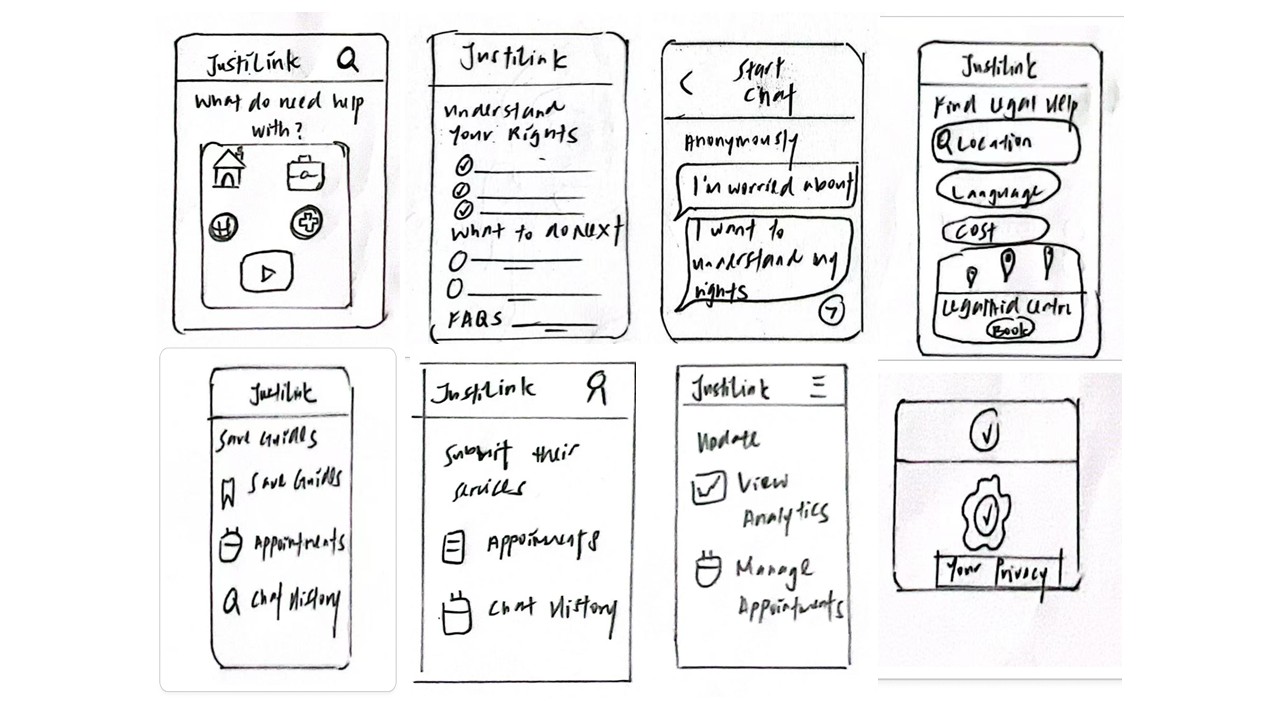 JustiLink
What do need help
with?
JustiLink
Understand
Your Rights
What to do Next
FAQS
Start
Chat
Anonymously
I'm worried about
I want to
understand my
rights
JustiLink
Find Legal Help
Location
Language
Cost
Legal Aid Centre
Book
JustiLink
Save Guides
Save Guides
Appointments
Chat History
JustiLink
Submit their
services
Appoinments
Chat History
JustiLink
Update
View
Analytics
Manage
Appointments
Your Privacy